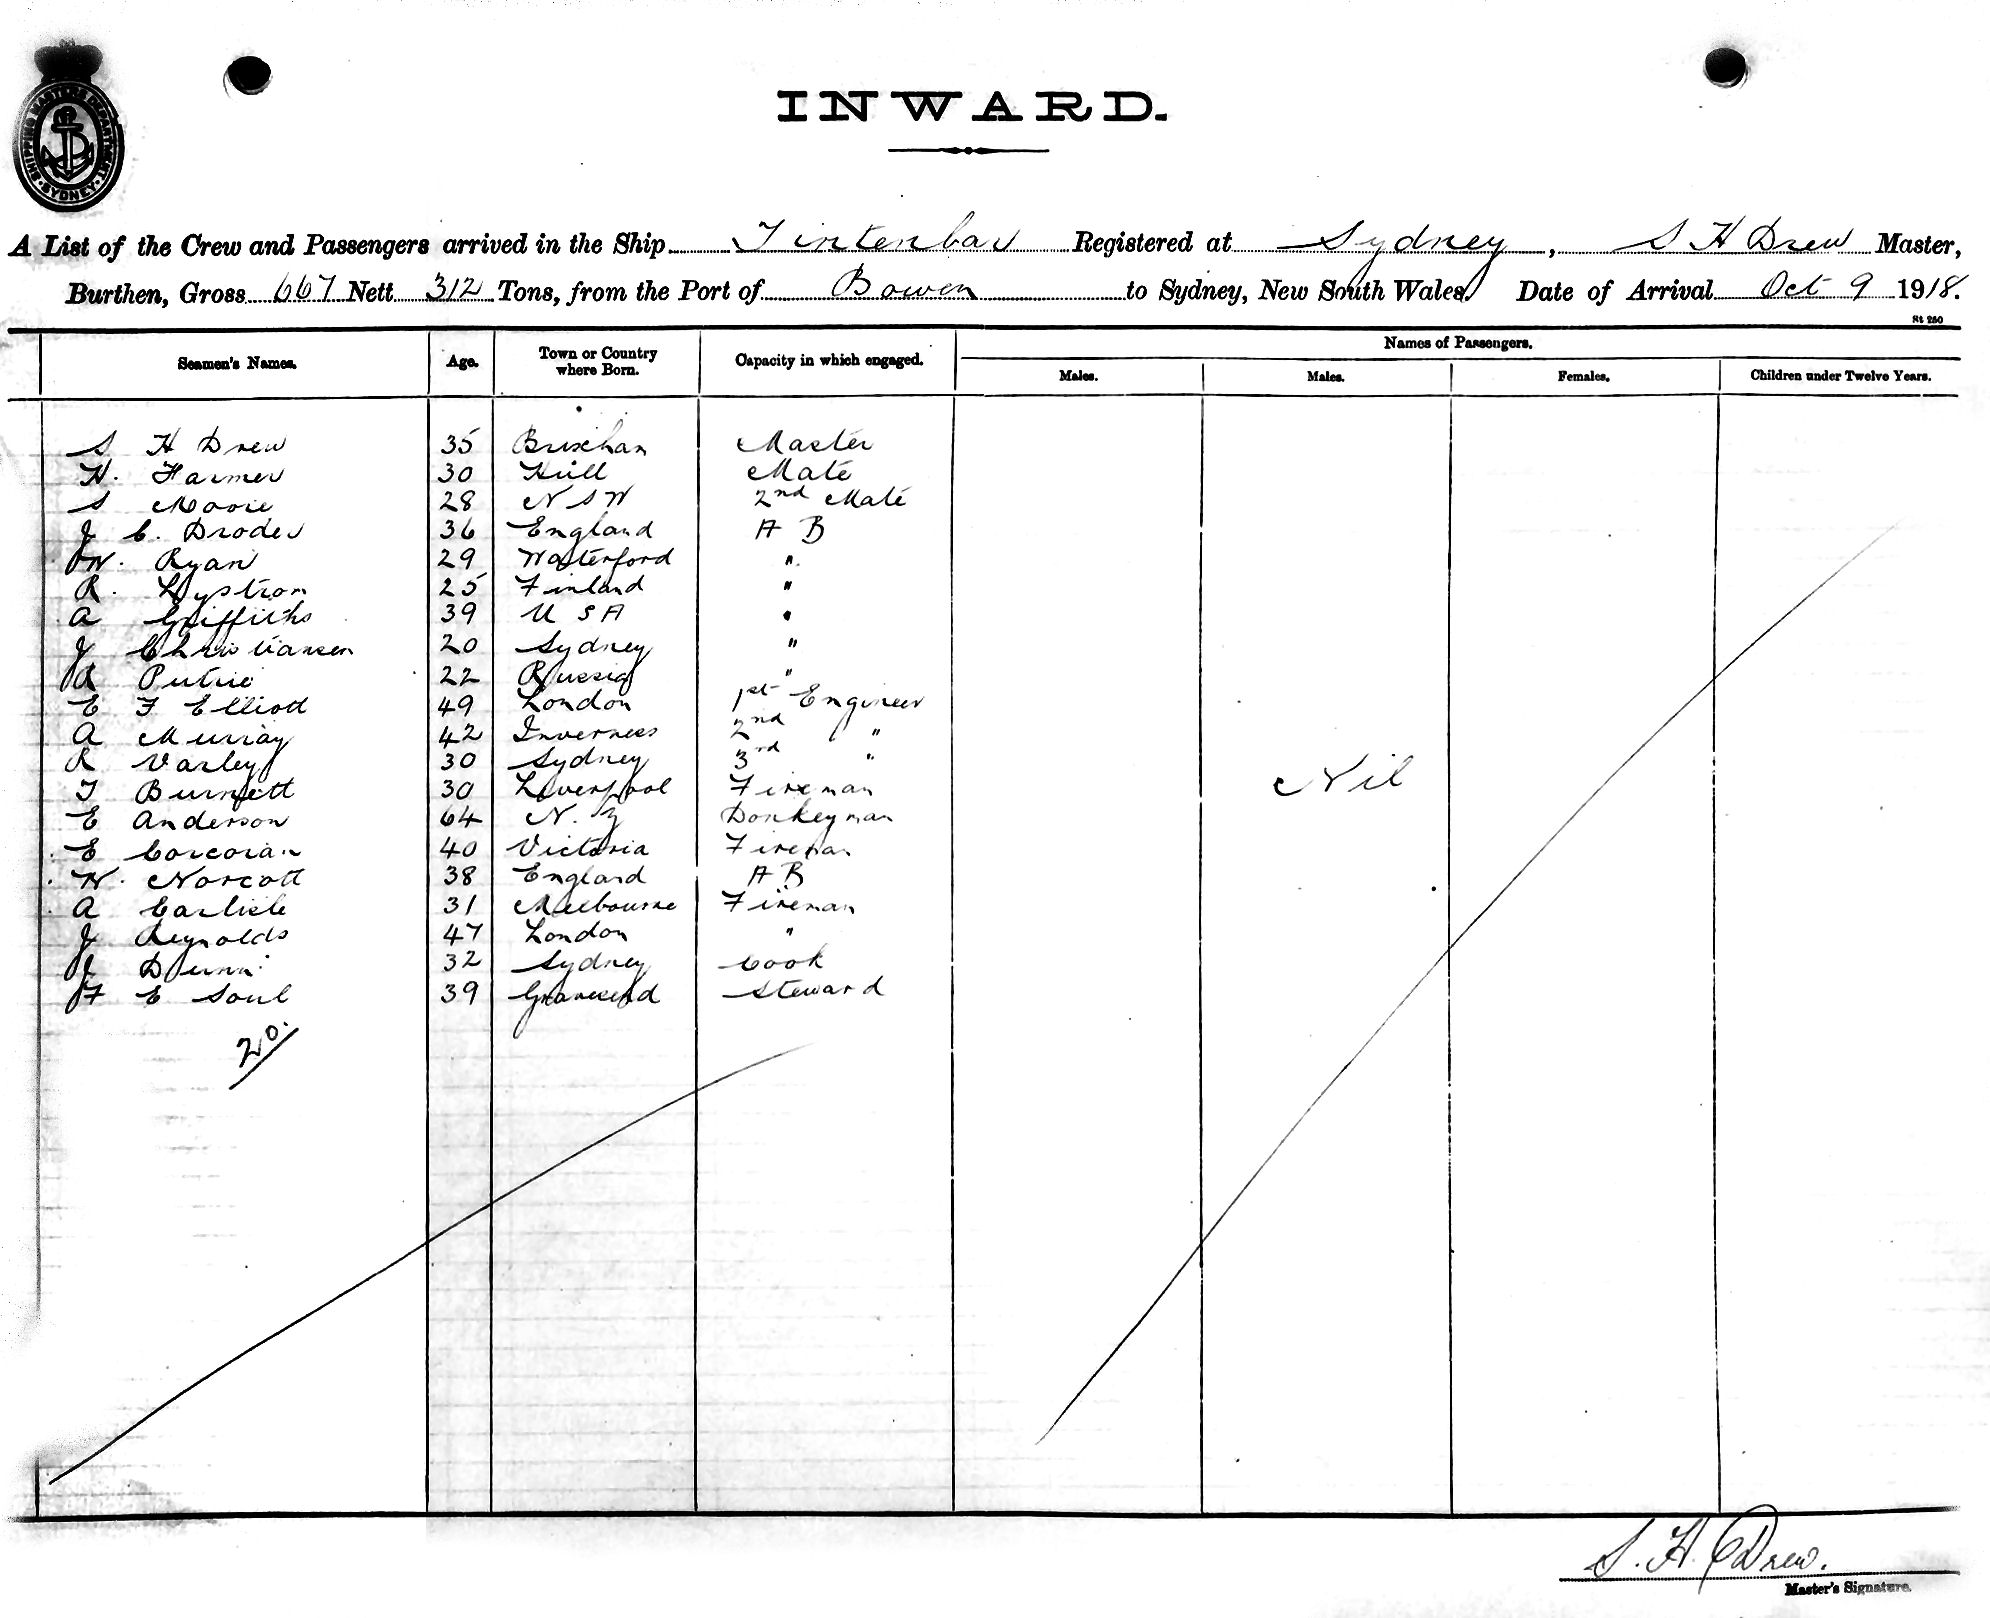 SHIPPING MASTERS DEPARTMENT
SYDNEY
INWARD.
A List of the Crew and Passengers arrived in the Ship Tintenbar Registered at Sydney, S H Drew Master,
Burthen, Gross 667 Nett 312 Tons, from the Port of Bowen to Sydney, New South Wales. Date of Arrival Oct 9 1918.
St 250
Seamen's Names. Age. Town or Country where Born. Capacity in which engaged. Names of Passengers.
Males. Males. Females. Children under Twelve Years.
S H Drew 35 Brixham Master
H. Farmer 30 Hull Mate
S Moore 28 N S W 2nd Mate
J C. Droder 36 England A B
W. Ryan 29 Waterford "
R. Lystrom 25 Finland "
A Griffiths 39 U S A "
J Christiansen 20 Sydney "
A 22 Russia "
E F Elliott 49 London 1st Engineer
A Murray 42 Inverness 2nd "
R Varley 30 Sydney 3rd "
T Burnett 30 Liverpool Fireman
E Anderson 64 N. Z Donkeyman
E Corcoran 40 Victoria Fireman
W. Norcott 38 England A B
A Carlisle 31 Melbourne Fireman
J Reynolds 47 London "
J Dunn 32 Sydney Cook
F E Soul 39 Gravesend Steward
20.
Nil
S. H. Drew.
Master's Signature.